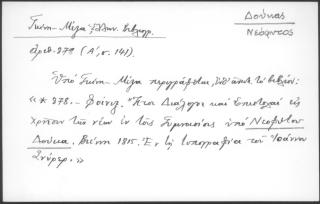 Γκίνη - Μέξα Ἑλλην. βιβλιογρ.
Δούκας
Νεόφυτος
ἀριθ. 878 (Α', σ. 141).
Ὑπὸ Γκίνη - Μέξα περιγράφεται τὸ βιβλίον:
«* 878. - Ἤτοι Διάλογοι καὶ Ἐπιστολαὶ εἰς
χρῆσιν τῶν νέων ἐν τοῖς Γυμνασίοις ὑπὸ Νεοφύτου
Δούκα. Βιέννη 1815. Ἐν τῇ τυπογραφίᾳ τοῦ Ἰωάννου
Σνίρερ.»